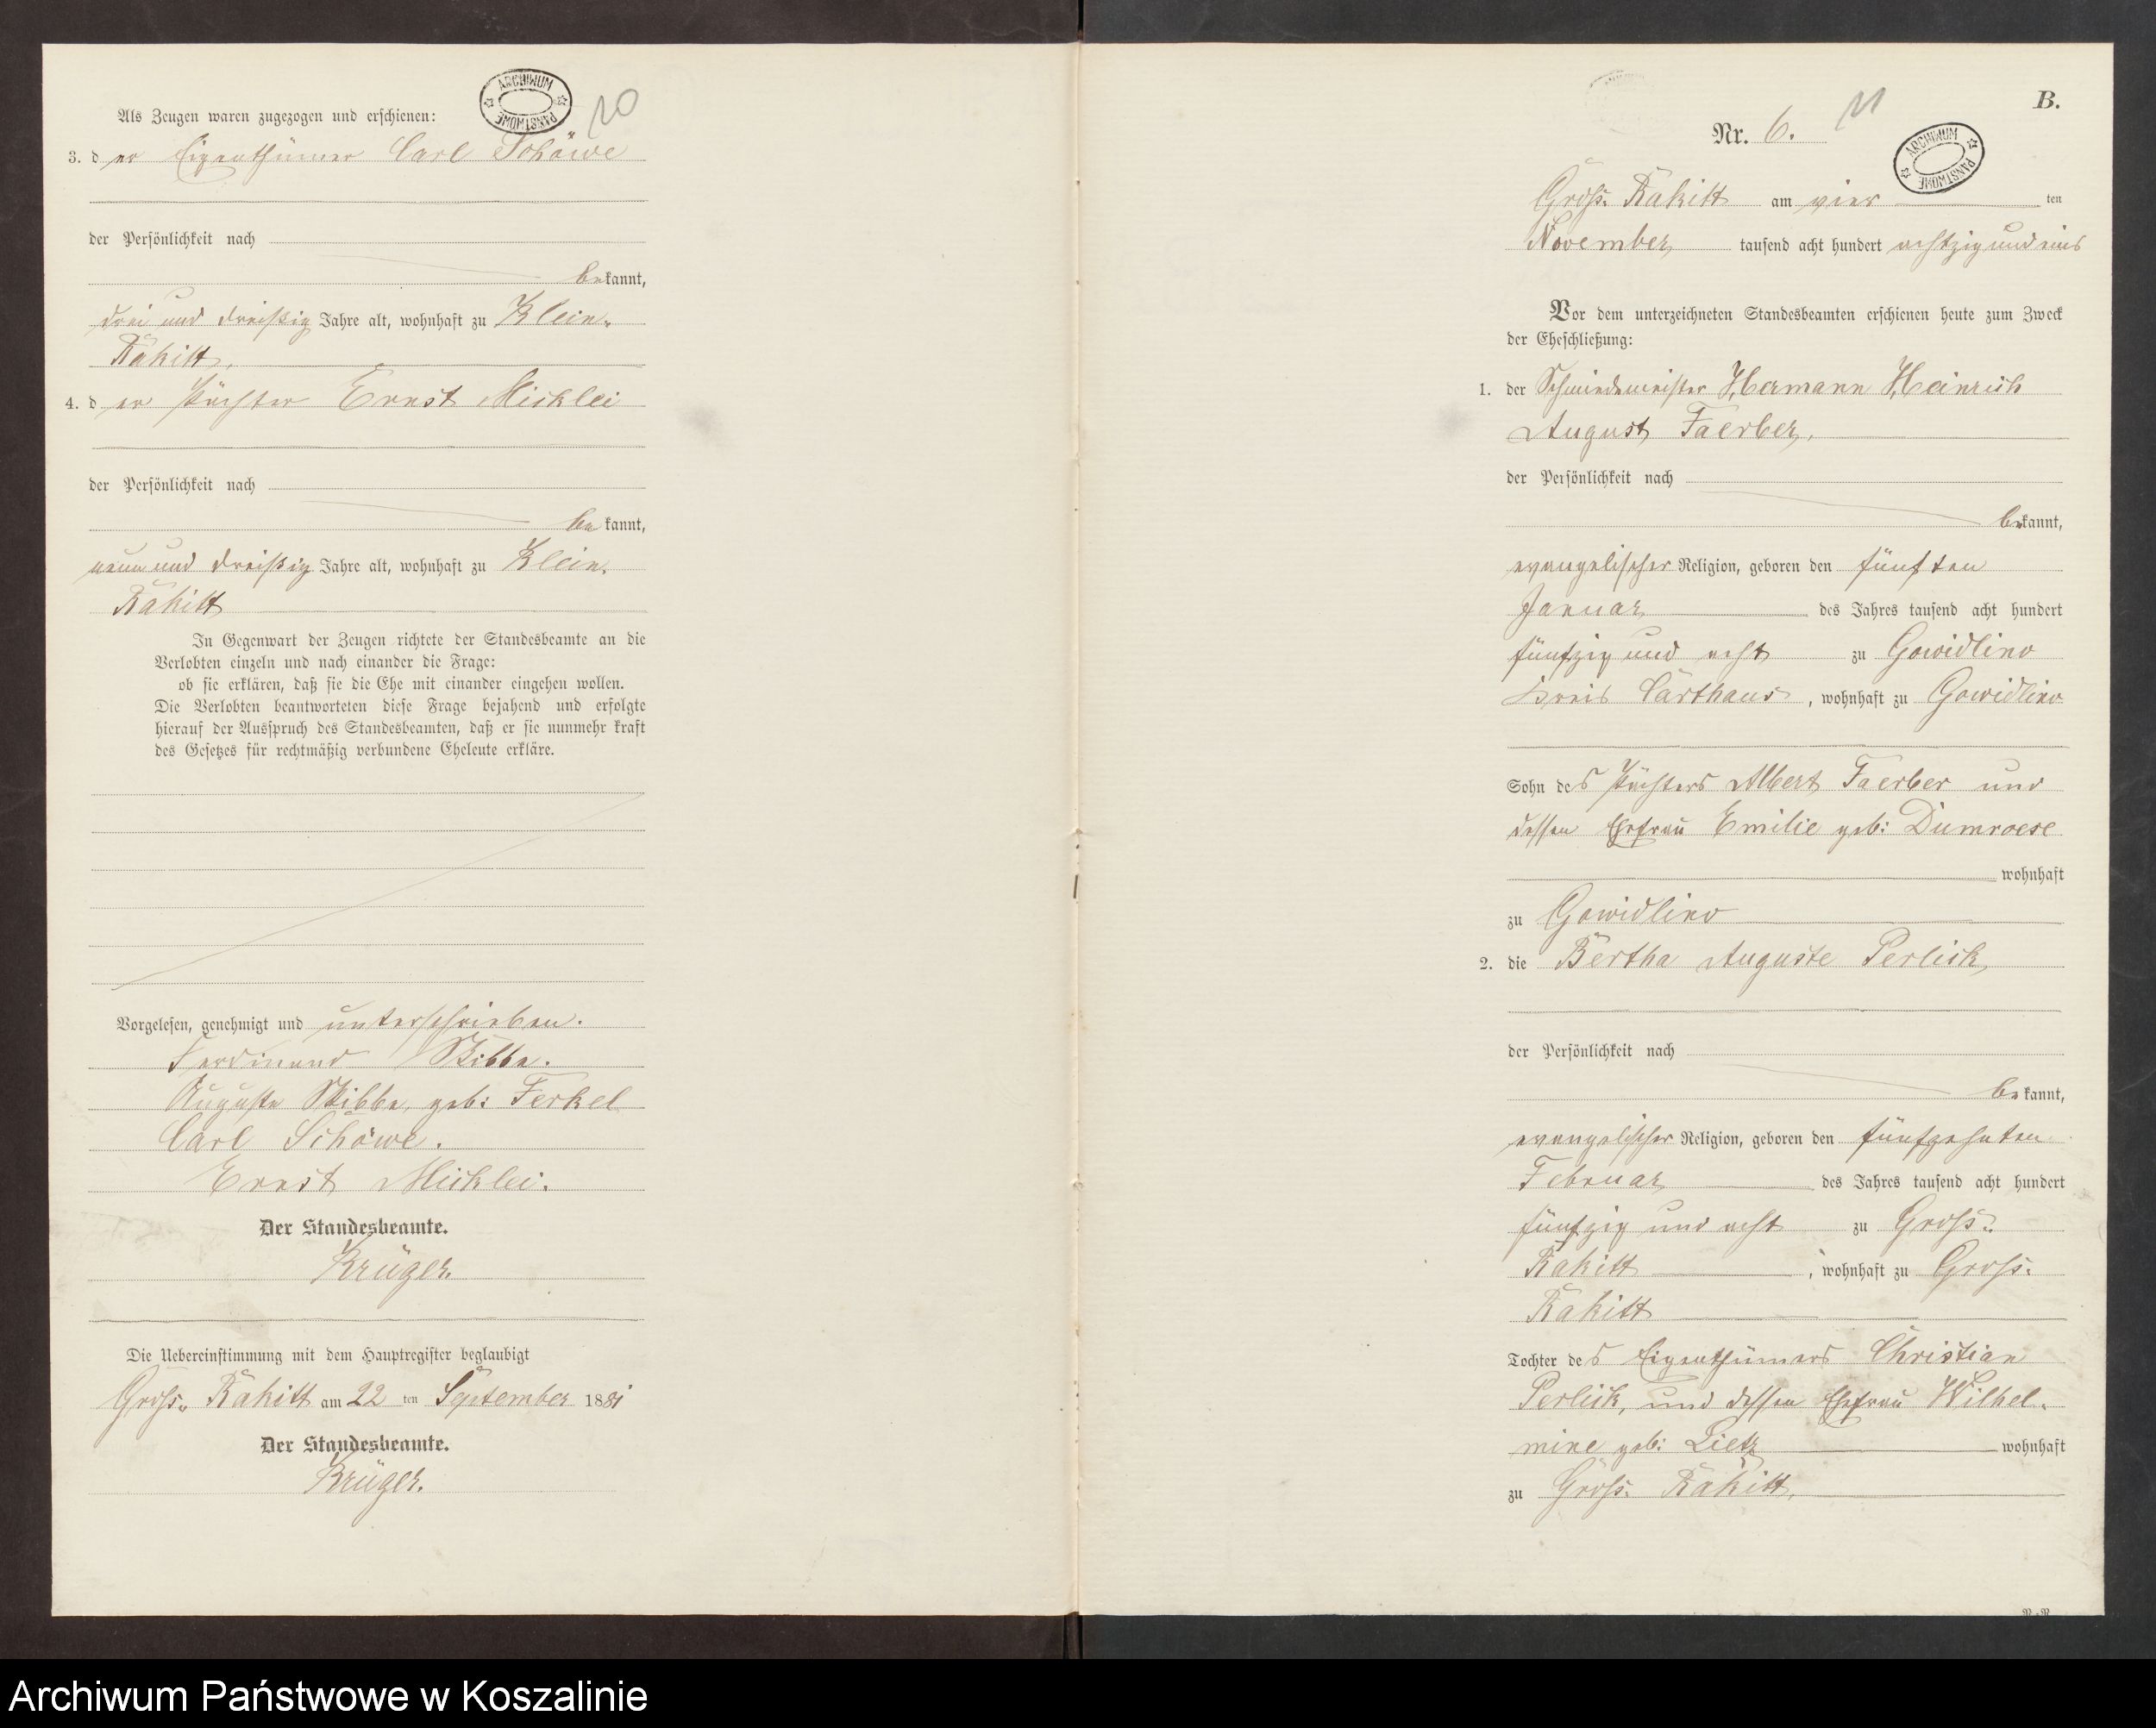 Als Zeugen waren zugezogen und erschienen:
ARCHIWUM
PAŃSTWOWE
20
3. der Eigenthümer Carl Schöwe
der Persönlichkeit nach
bekannt,
drei und dreißig Jahre alt, wohnhaft zu Klein-
Rakitt,
4. der Pächter Ernst Micklei
der Persönlichkeit nach
bekannt,
neun und dreißig Jahre alt, wohnhaft zu Klein-
Rakitt
In Gegenwart der Zeugen richtete der Standesbeamte an die
Verlobten einzeln und nach einander die Frage:
ob sie erklären, daß sie die Ehe mit einander eingehen wollen.
Die Verlobten beantworteten diese Frage bejahend und erfolgte
hierauf der Ausspruch des Standesbeamten, daß er sie nunmehr kraft
des Gesetzes für rechtmäßig verbundene Eheleute erkläre.
Vorgelesen, genehmigt und unterschrieben.
Ferdinand Stibbe.
Auguste Stibbe, geb: Ferkel
Carl Schöwe.
Ernst Micklei.
Der Standesbeamte.
Krüger.
Die Uebereinstimmung mit dem Hauptregister beglaubigt
Gross-Rakitt am 22 ten September 1881
Der Standesbeamte.
Krüger.
B.
21
Nr. 6.
ARCHIWUM
PAŃSTWOWE
Gross-Rakitt am vier ten
November tausend acht hundert achtzig und eins
Vor dem unterzeichneten Standesbeamten erschienen heute zum Zweck
der Eheschließung:
1. der Schmiedemeister Hermann Heinrich
August Faerber,
der Persönlichkeit nach
bekannt,
evangelischer Religion, geboren den fünften
Januar des Jahres tausend acht hundert
fünfzig und acht zu Gowidlino
Kreis Carthaus, wohnhaft zu Gowidlino
Sohn des Pächters Albert Faerber und
dessen Ehefrau Emilie geb: Dumroese
wohnhaft
zu Gowidlino
2. die Bertha Auguste Perlick,
der Persönlichkeit nach
bekannt,
evangelischer Religion, geboren den fünfzehnten
Februar des Jahres tausend acht hundert
fünfzig und acht zu Gross-
Rakitt, wohnhaft zu Gross-
Rakitt
Tochter des Eigenthümers Christian
Perlick, und dessen Ehefrau Wilhel-
mine geb: Lietz wohnhaft
zu Gross-Rakitt.
Archiwum Państwowe w Koszalinie